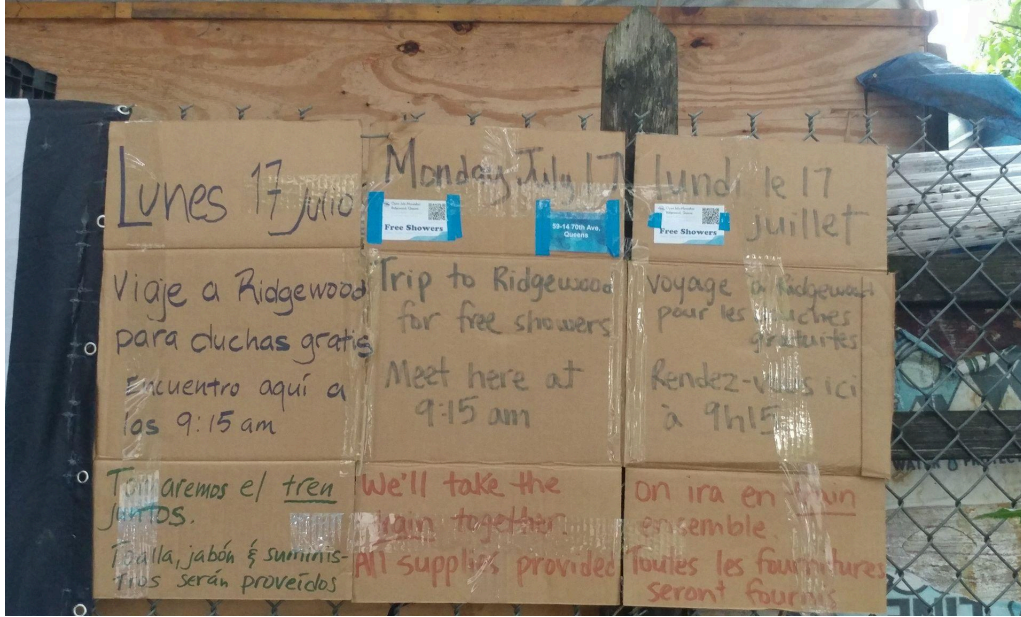 Lunes 17 julio
Viaje a Ridgewood
para duchas gratis
Encuentro aquí a
las 9:15 am
Tomaremos el tren
juntos.
Toalla, jabón & suminis-
tros serán proveídos
Monday July 17
Free Showers
59-14 70th Ave,
Queens
Trip to Ridgewood
for free showers
Meet here at
9:15 am
We'll take the
train together.
All supplies provided
Lundi le 17
juillet
Free Showers
Voyage à Ridgewood
pour les douches
gratuites
Rendez-vous ici
à 9h15
On ira en train
ensemble.
Toutes les fournitures
seront fournis